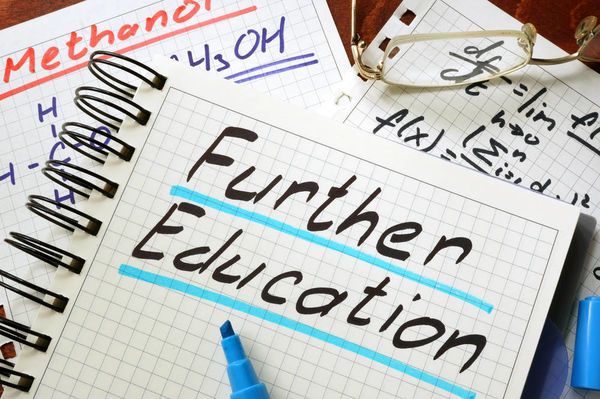 Methanol
H₃OH
H
H-C-O
H
df
dt
= lim
h→0
f(x)
Further
Education